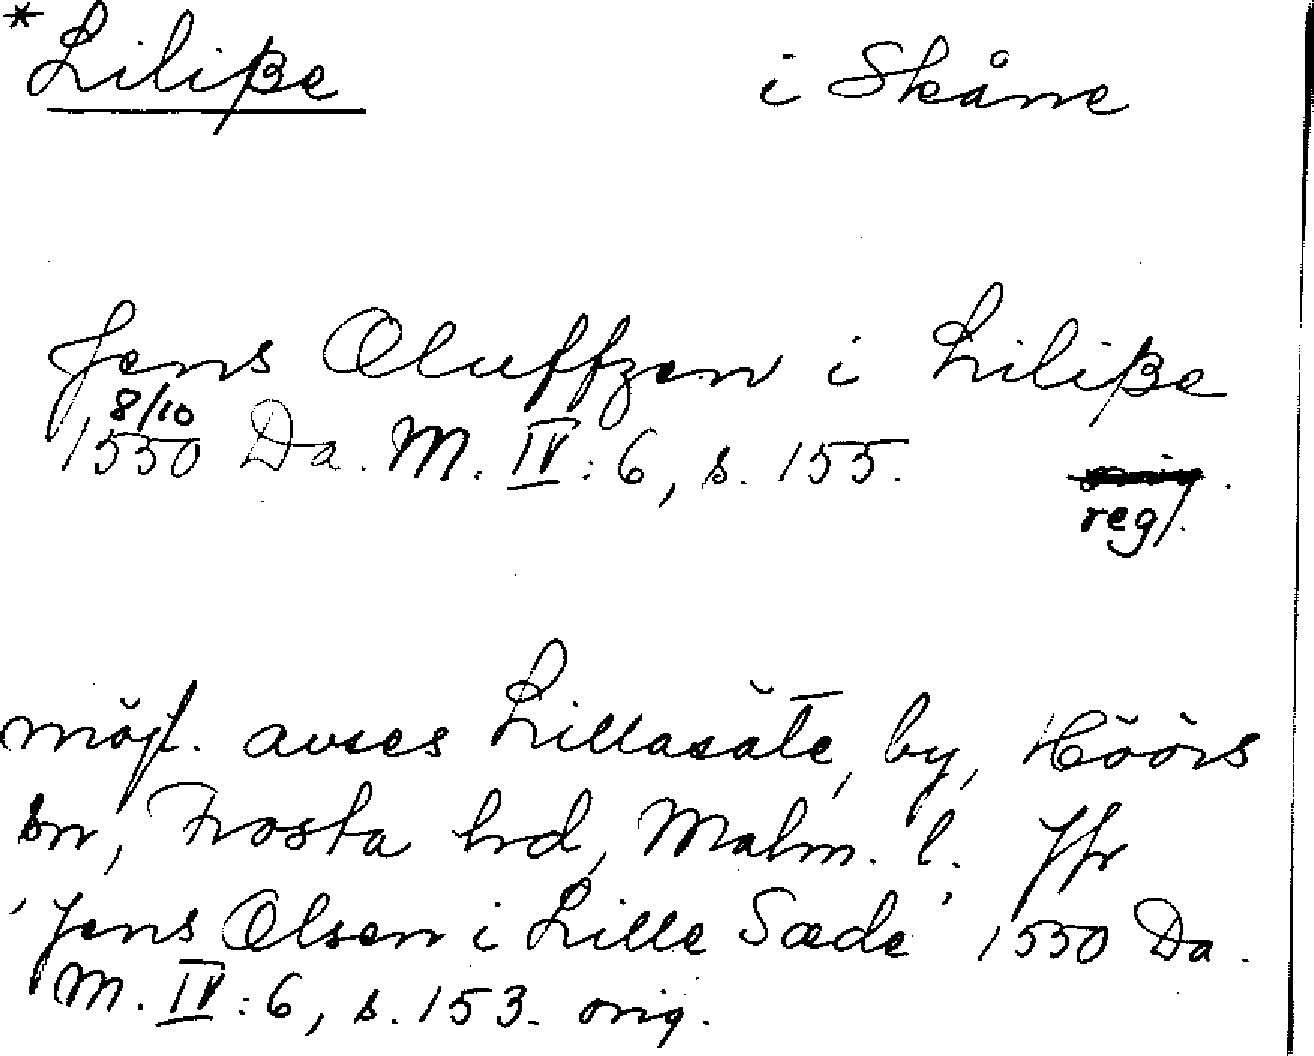 *Liliße i Skåne
Jens Oluffzen i Liliße
8/10
1550 Da. M. IV:6, s. 155.
regl.
möjl. avses Lillasäte, by, Höörs
sn, Frosta hrd, Malm. l. Jfr
'Jens Olsen i Lille Sæde' 1550 Da.
M. IV:6, s. 153. orig.